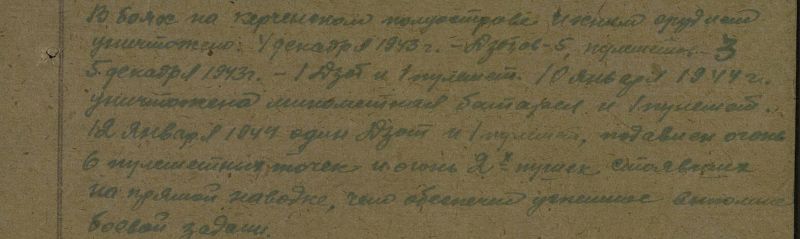 В боях на керченском полуострове и их орудием
уничтожено: 4 декабря 1943 г. – Дзотов-5, пулеметов-3
5 декабря 1943 г. – 1 Дзот и 1 пулемет. 10 января 1944 г.
уничтожена минометная батарея и 1 пулемет.
12 января 1944 один Дзот и 1 пулемет, подавлен огонь
6 пулеметных точек и огонь 2х пушек стоявших
на прямой наводке, чем обеспечил успешное выполние
боевой задачи.